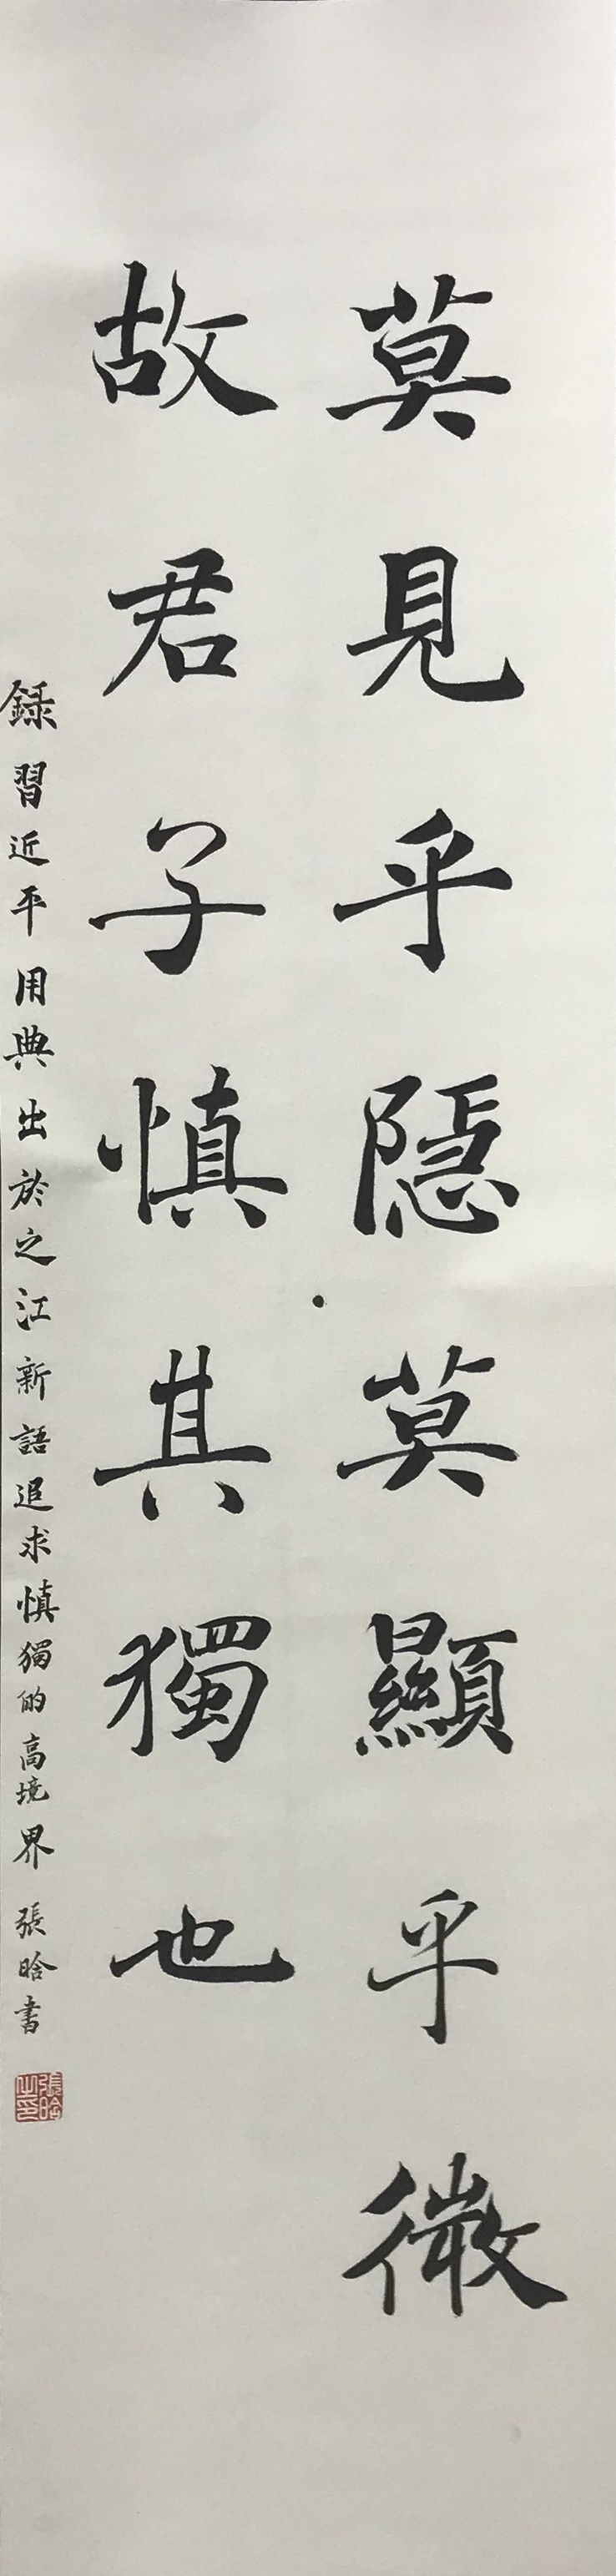 莫見乎隱莫顯乎微
故君子慎其獨也
録習近平用典出於之江新語追求慎獨的高境界 張晗書
張晗之印